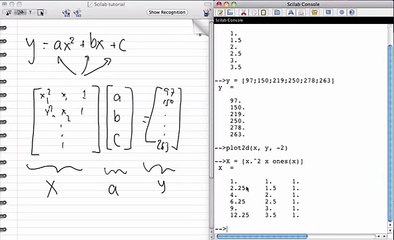 Scilab tutorial
Show Recognition
y = ax² + bx + c
x₁² x₁ 1
x₂² x₂ 1
:
: 1
a
b
c
=
97
150
:
263
X a y
Scilab Console
1.
1.5
2.
2.5
3.
3.5
-->y = [97;150;219;250;278;263]
y =
97.
150.
219.
250.
278.
263.
-->plot2d(x, y, -2)
-->X = [x.^2 x ones(x)]
X =
1. 1. 1.
2.25 1.5 1.
4. 2. 1.
6.25 2.5 1.
9. 3. 1.
12.25 3.5 1.
-->